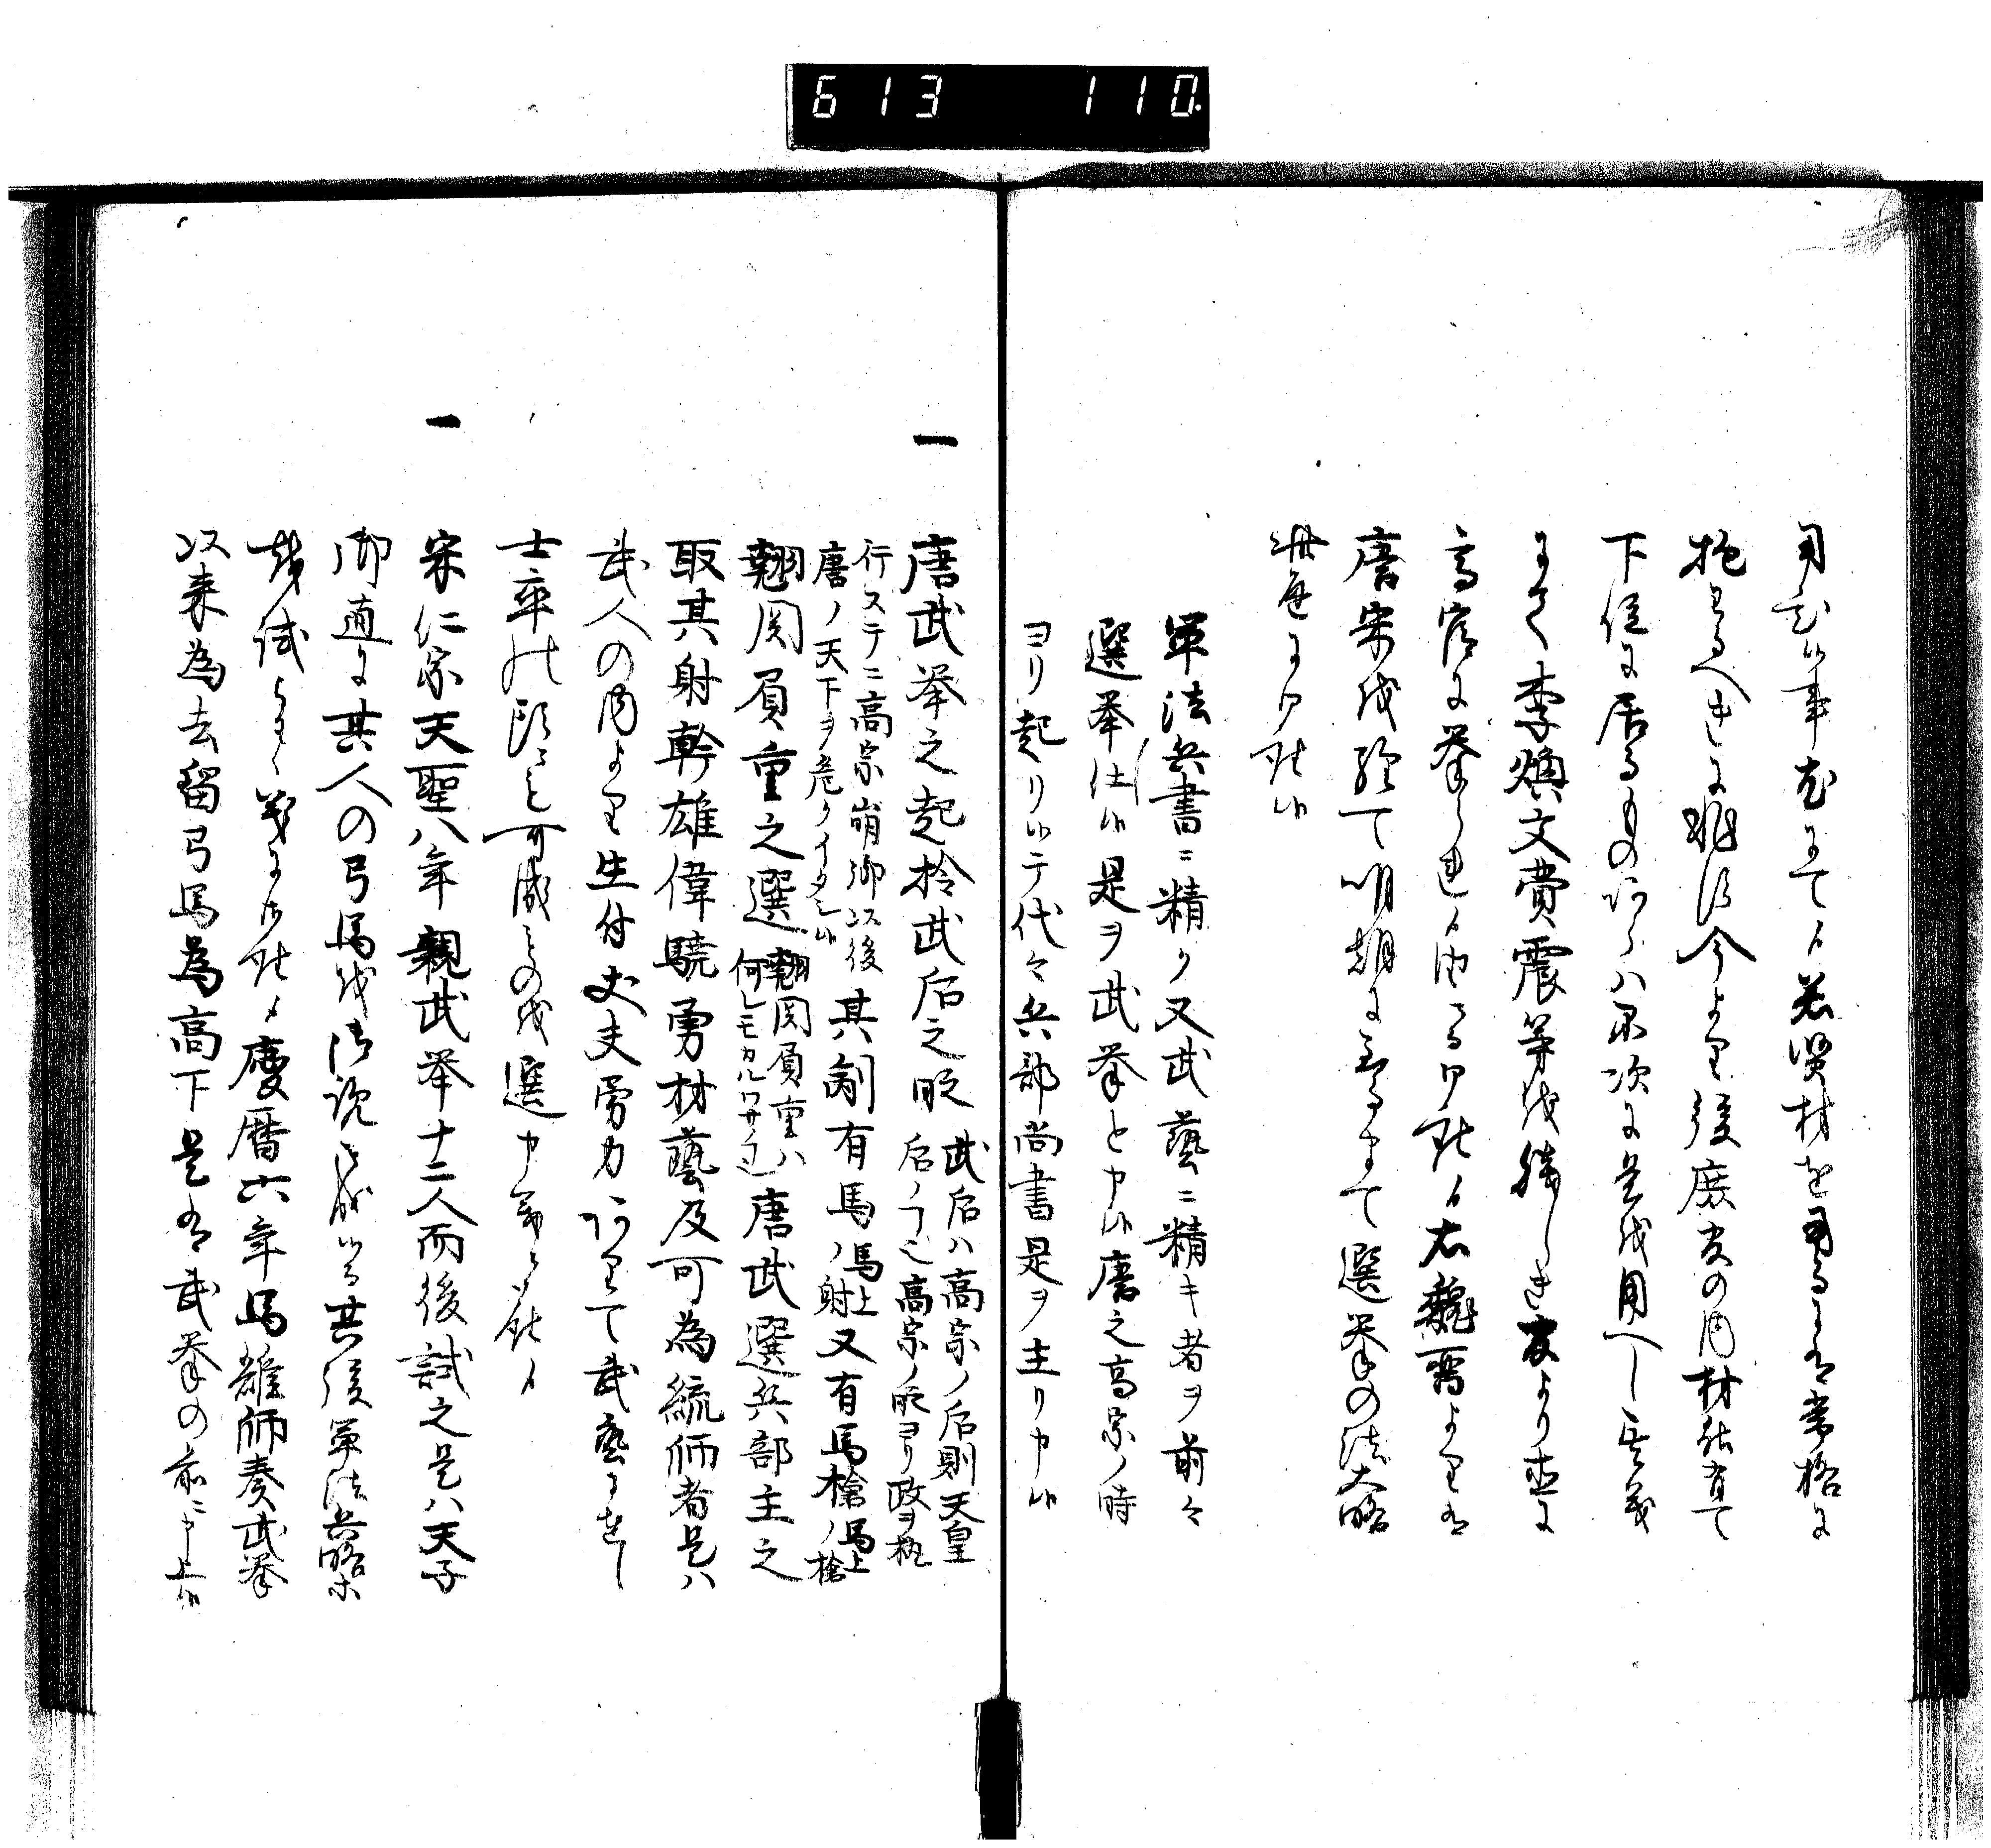 613 110
用ひ候事尤にて候若賢材を用るには常格に
抱るへきに非す今より後庶吏の内材能有て
下位に居るものあらハ不次に是を用へし
にて李煥文費震等
高官に挙られ候由に御座候右魏晋よりは
唐宋を経て明朝に至るまて選挙の法大略
此通に御座候
軍法兵書ニ精ク又武藝ニ精キ者ヲ前々
選挙仕候是ヲ武挙と申候唐之高宗ノ時
ヨリ起リ候テ代々兵部尚書是ヲ主リ申候
一 唐武挙之起於武后之時 武后ハ高宗ノ后則天皇
后ノ事也高宗ノ時ヨリ政ヲ執
行ステニ高宗崩御以後
唐ノ天下ヲ危クイタシ候 其制有馬ノ射 馬上 又有馬槍 馬上ノ槍
翹関負重之選 翹関負重ハ
何レモカルワザ也 唐武選兵部主之
取其射幹雄偉驍勇材藝及可為統師者是ハ
武人の内より生付丈夫勇力ありて武藝に達し
士卒の頭とも可成ものを選申筈に御座候
一 宋仁宗天聖八年親武挙十二人而後試之是ハ天子
御直に其人の弓馬を御覧被成候而其後軍法兵略等
御座候慶暦六年馬離師奏武挙
以来為去留弓馬為高下是は武挙の前ニ申上候